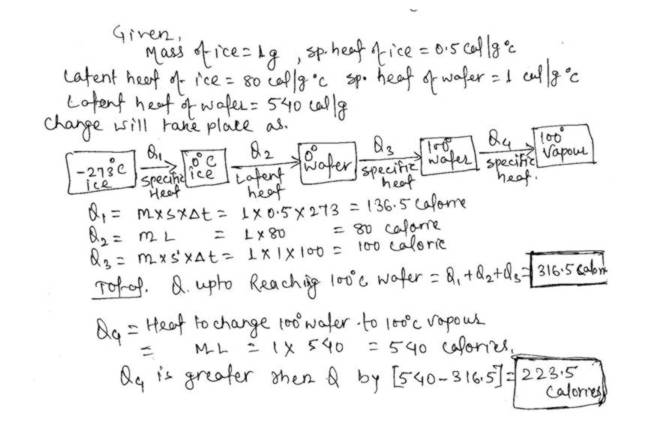 Given,
Mass of ice = 1g , sp. heat of ice = 0.5 cal/g°c
Latent heat of ice = 80 cal/g°c sp. heat of water = 1 cal/g°c
Latent heat of water = 540 cal/g
Change will take place as.
-273°C ice Q1 Specific Heat 0°C ice Q2 Latent heat 0° Water Q3 specific heat 100° Water Q4 specific heat. 100° Vapour
Q1 = m×s×Δt = 1×0.5×273 = 136.5 Calorie
Q2 = mL = 1×80 = 80 calorie
Q3 = m×s'×Δt = 1×1×100 = 100 caloric
Total. Q. upto Reaching 100°c water = Q1+Q2+Q3 = 316.5 Calori
Q4 = Heat to change 100° water to 100°c vapour
= ML = 1 × 540 = 540 calories,
Q4 is greater then Q by [540-316.5] = 223.5 Calories